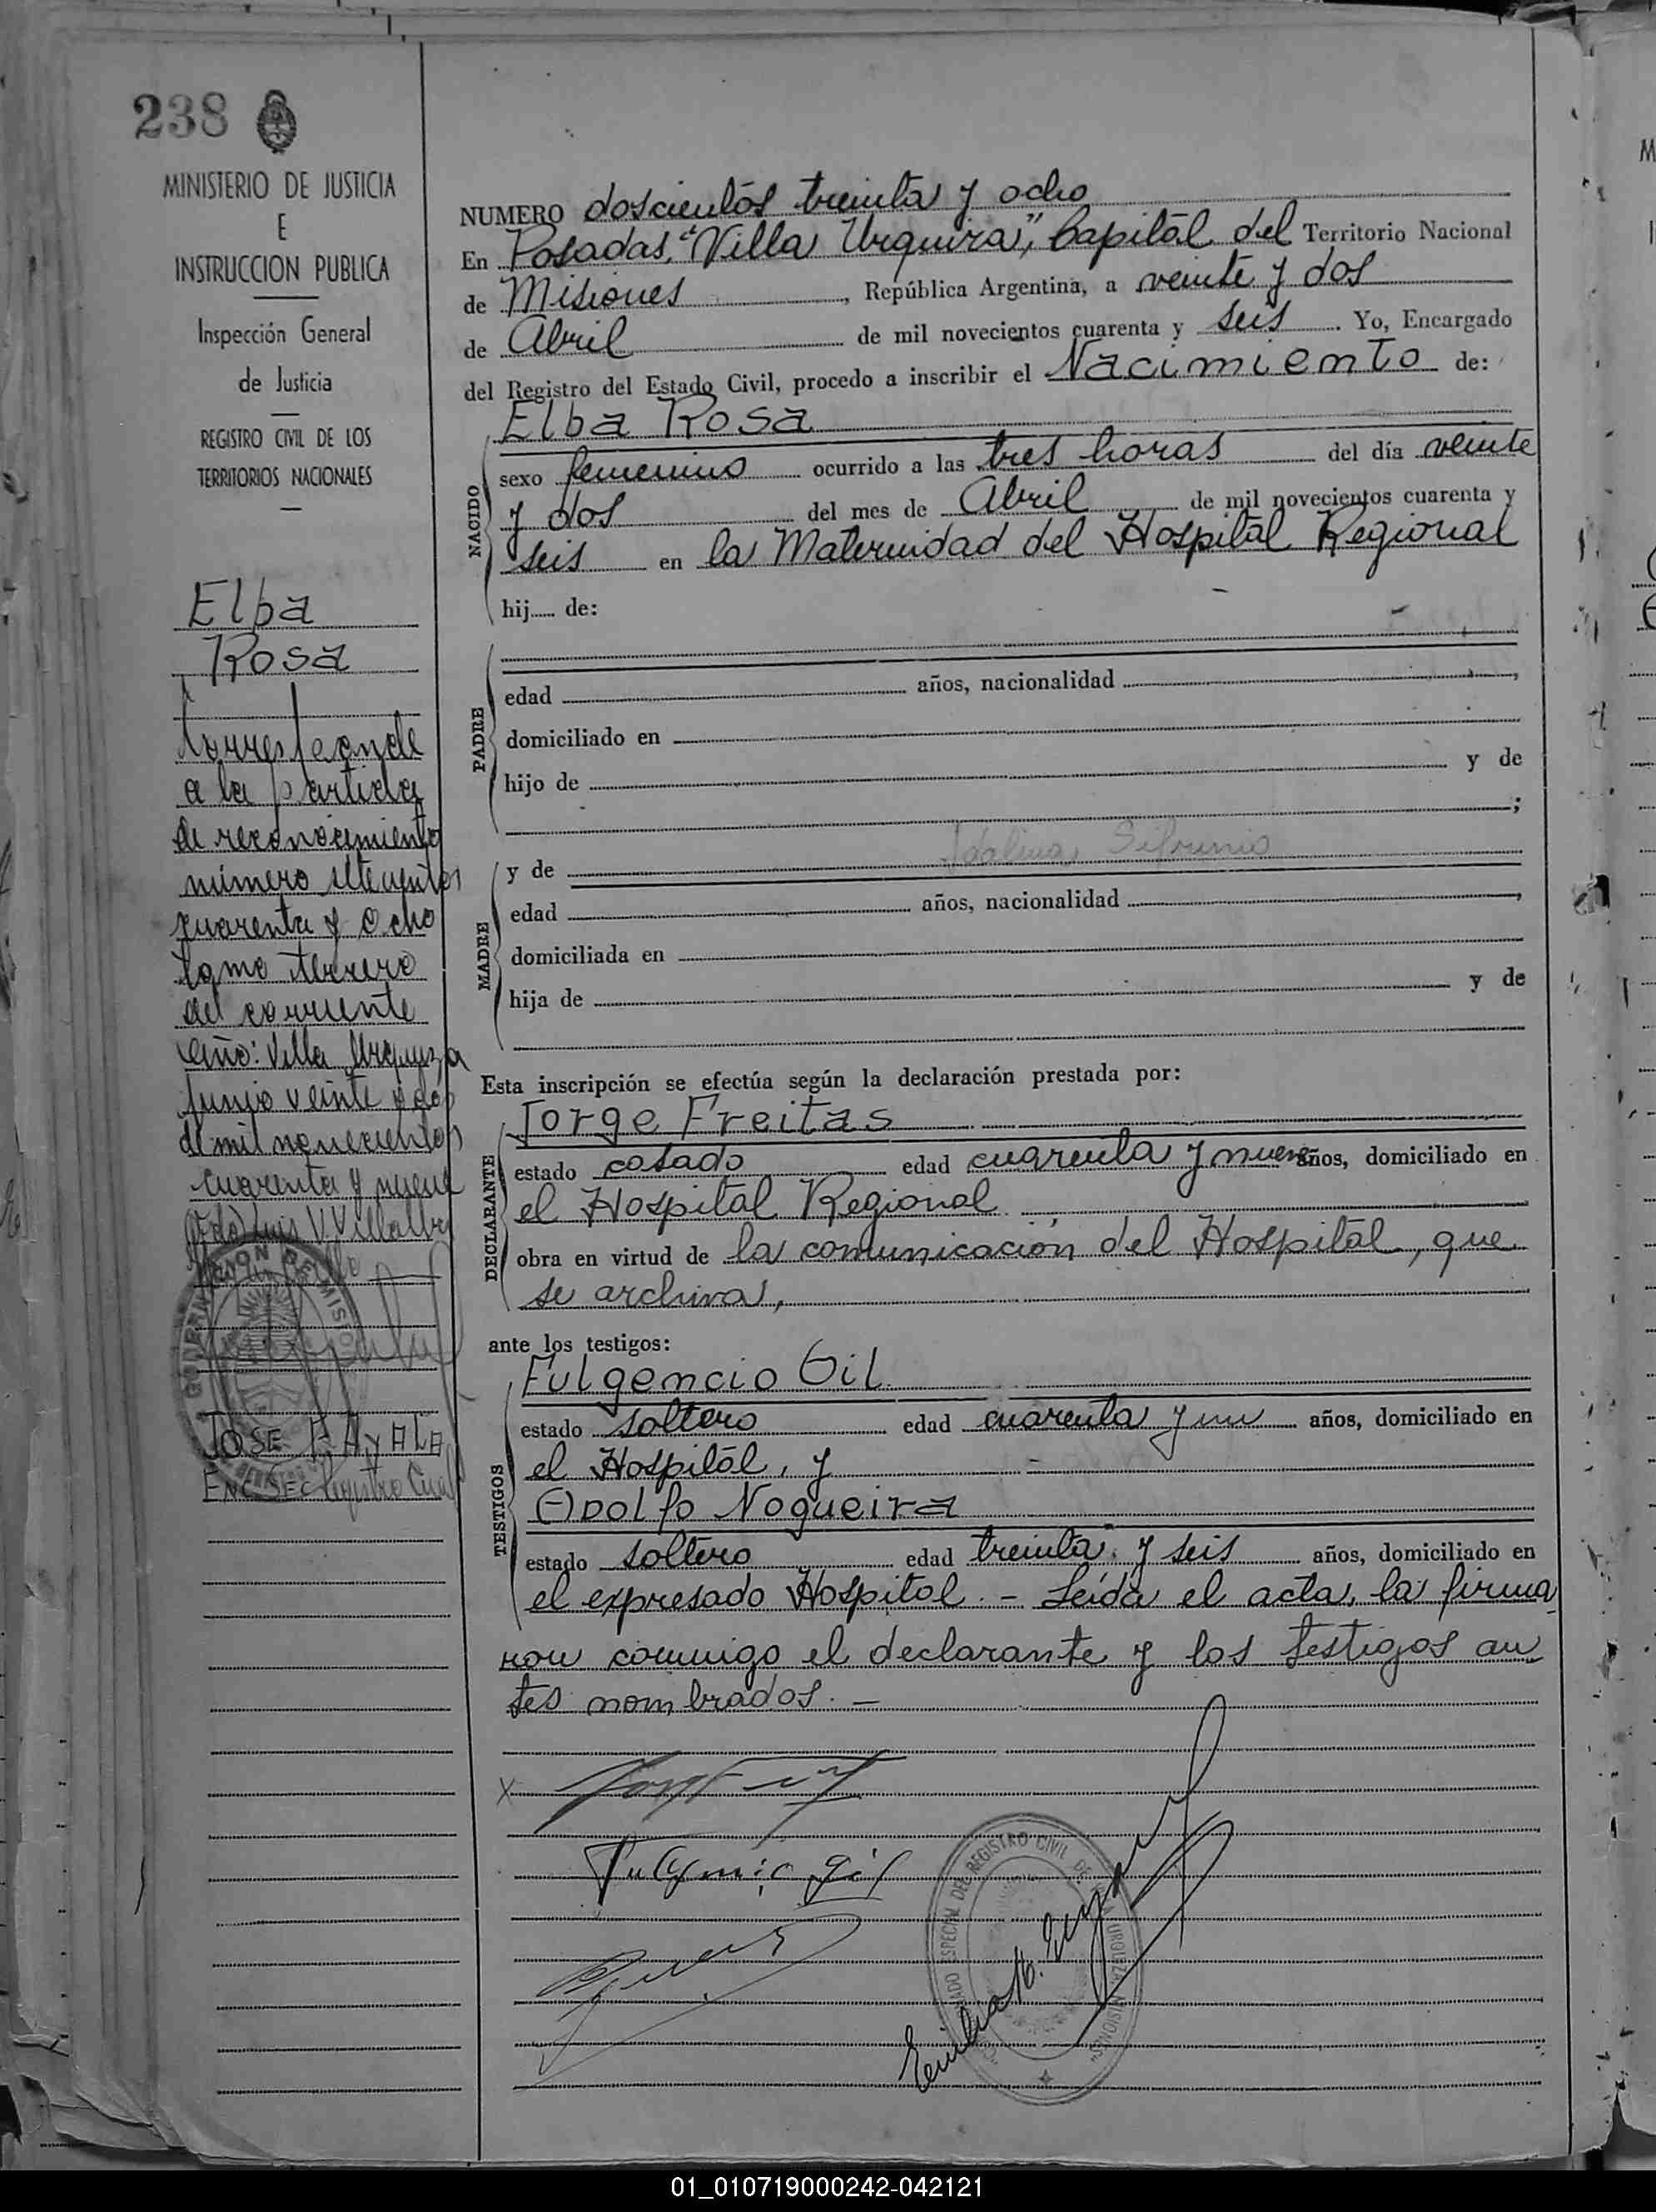 238
MINISTERIO DE JUSTICIA
E
INSTRUCCION PUBLICA
Inspección General
de Justicia
REGISTRO CIVIL DE LOS
TERRITORIOS NACIONALES
Elba
Rosa
Corresponde
a la partida
de reconocimiento
número setecientos
cuarenta y ocho
tomo tercero
del corriente
año: Villa Urquiza
junio veinte y dos
de mil novecientos
cuarenta y nueve
(Fdo) Luis V. Villalba
GOBERNACION DE MISIONES
JOSE AYALA
ENC. SEC Registro Civil
NUMERO doscientos treinta y ocho
En Posadas, "Villa Urquiza", Capital del Territorio Nacional
de Misiones, República Argentina, a veinte y dos
de Abril de mil novecientos cuarenta y seis. Yo, Encargado
del Registro del Estado Civil, procedo a inscribir el Nacimiento de:
Elba Rosa
NACIDO
sexo femenino ocurrido a las tres horas del día veinte
y dos del mes de Abril de mil novecientos cuarenta y
seis en la Maternidad del Hospital Regional
hij de:
PADRE
edad años, nacionalidad ,
domiciliado en
hijo de y de
;
MADRE
y de
edad años, nacionalidad ,
domiciliada en
hija de y de
Esta inscripción se efectúa según la declaración prestada por:
Jorge Freitas
DECLARANTE
estado casado edad cuarenta y nueve años, domiciliado en
el Hospital Regional
obra en virtud de la comunicación del Hospital, que
se archiva,
ante los testigos:
Fulgencio Gil
TESTIGOS
estado soltero edad cuarenta y un años, domiciliado en
el Hospital, y
Adolfo Nogueira
estado soltero edad treinta y seis años, domiciliado en
el expresado Hospital. - Leída el acta, la firma
ron conmigo el declarante y los testigos an
tes nombrados. -
Fulgencio Gil
REGISTRO CIVIL DE VILLA URQUIZA MISIONES
01_010719000242-042121